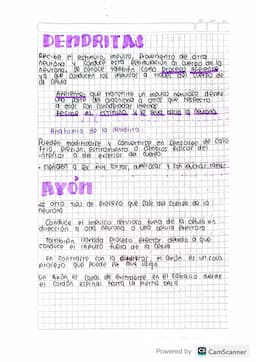 DENDRITAS
Recibe el estimulo, impulso, proveniente de otra
neurona y conduce esta estimulación al cuerpo de la
neurona. Se conoce también como proceso aferente
ya que conducen los impulsos a través del cuerpo de
la célula
Aferente: que transmite un impulso nervioso desde
una parte del organismo a otra que respecto
a ella son consideradas
Recibe el estimulo y lo lleva hacia la neurona
Anatomia de la dendrita.
Pueden modificarse y convertirse en sensores de calor
frío, presión, estiramiento o cambios físicos del
interior o del exterior del cuerpo
a ser muy cortas, y con muchas ramas.
AXÓN
otro tipo de proceso que sale del cuerpo de la
neurona
Conduce el impulso nervioso fuera de la célula en
dirección a otra neurona o una célula efectora
También llamada proceso efector debido a que
conduce el impulso fuera de la célula
En contraste con la dendrita, el axón es un solo
proceso que puede ser muy largo
Un Axón es capaz de extenderse en el cuerpo desde
el cordón espinal hasta la pierna baja
Powered by CS CamScanner